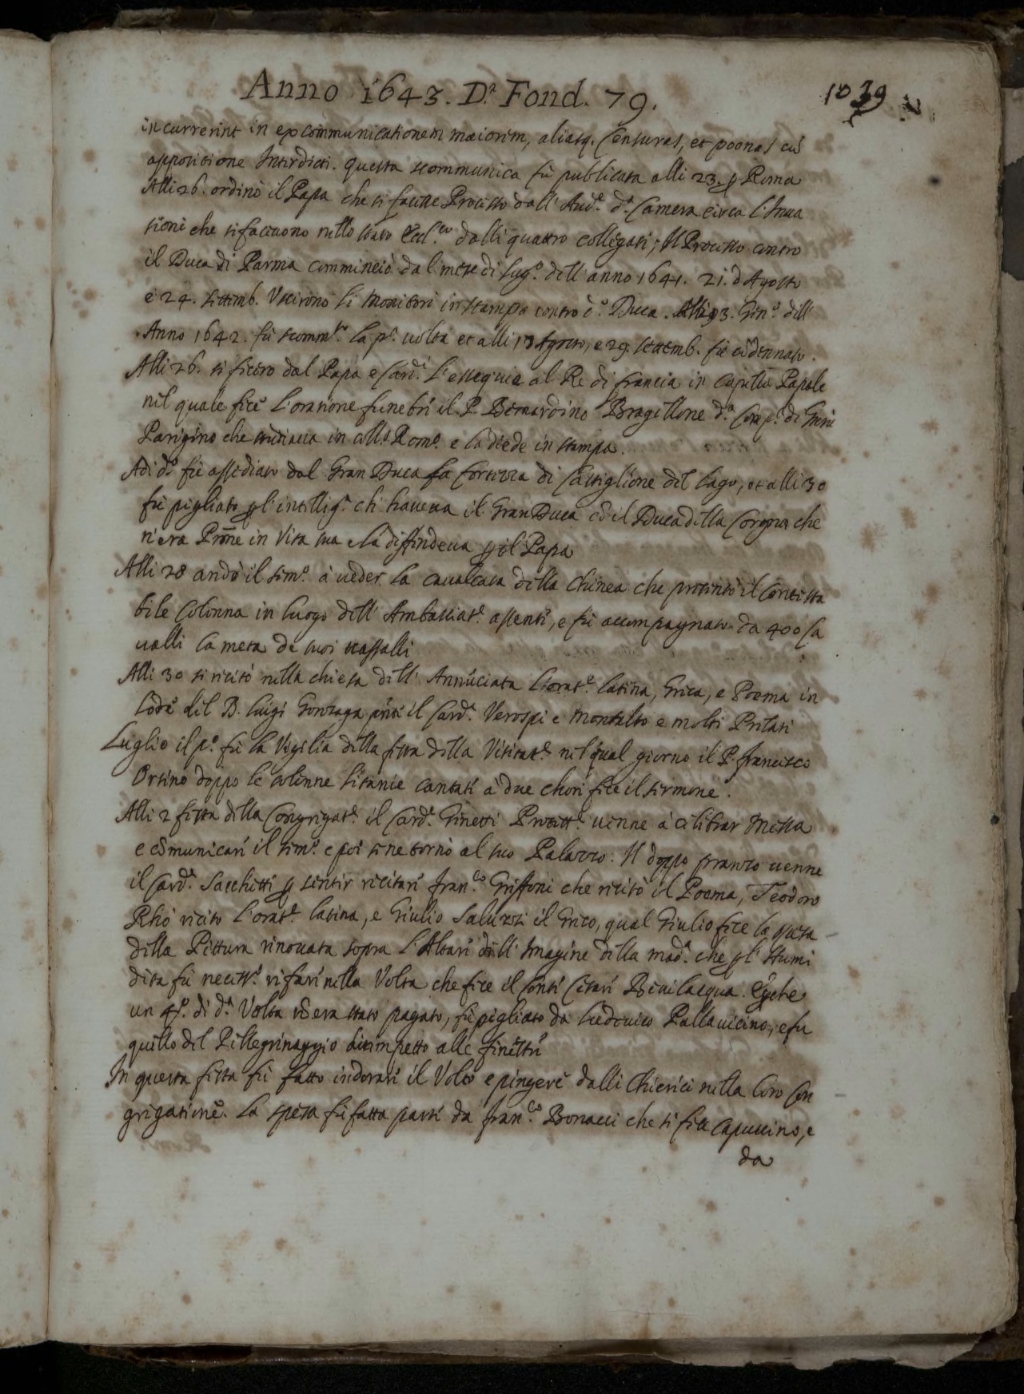 Anno 1643. D.ª Fond. 79.
1039
incurrerint in excommunicationem maiorem, aliasq. Censuras, et poenas cũ
appositione Interdicti. Questa scommunica fù publicata alli 23. p Roma
Alli 26. ordinò il Papa che si facesse Processo dall' Aud.e d.ª Camera circa l'Inua
sioni che si faceuono nello stato Eccl.co dalli quattro collegati; Il Processo contro
il Duca di Parma cominciò dal mese di Lug.o dell' anno 1641. 21. d'Agosto
e 24. settemb. Vscirono li monitorì in stampa contro d.o Duca. Alli 13. Gen.o dell'
Anno 1642. fù scomm.to la p.ª uolta et alli 13 Agosto, e 29 settemb. fù cõdennato.
Alli 26. si fecero dal Papa e Card.i l'essequie al Re di francia in Capella Papale
nel quale fece l'oratione funebre il P. Bernardino Bragellone d.ª Comp.ª di Giesù
Parigino che studiaua in coll.o Rom.o e la diede in stampa.
Adi d.o fù assediato dal Gran Duca la Fortezza di Castiglione del Lago, et alli 30
fù pigliato p l'intellig.ª ch' haueua il Gran Duca cõ il Duca della Corgna che
n'era Prõne in Vita sua e la diffendeua p il Papa
Alli 28 andò il sem.o à ueder la caualcata della Chinea che presentò il Contesta
bile Colonna in luogo dell' Ambasciat.e assente, e fù accompagnato da 400 Ca
ualli la metà de suoi uassalli
Alli 30 si recitò nella chiesa dell' Annũciata l'orat.e latina, Greca, e Poema in
lode del B. Luigi Gonzaga pñti il Card.i Verospi e Montalto e molti Prelati
Luglio il p.o fù la Vigilia della festa della Visitat.e nel qual giorno il P. francesco
Orsino doppo le solenne litanie cantate à due chori fece il sermone.
Alli 2 festa della Congregat.e il Card.e Ginetti Protett.e uenne à celebrar Messa
e cõmunicare il sem.o e poi se ne tornò al suo Palazzo. Il doppo pranzo uenne
il Card.e Sacchetti p sentir recitare fran.co Griffoni che recitò il Poema, Teodoro
Rhò recitò l'orat.e latina, e Giulio Saluzzi il Greco, qual Giulio fece la spesa
della Pittura rinouata sopra l'Altare dell' Imagine della mad.ª che p l'Humi
dità fù necess.o rifare nella Volta che fece il Conte Cesare Beuilacqua. Perche
un 4.o di d.ª Volta nõ era stato pagato, fù pigliato da Ludouico Pallauicino, e fu
quello del Pellegrinaggio dirimpetto alle finestre
In questa festa fù fatto indorare il Volto e pingere dalli Chierici nella loro Con
gregatione. La spesa fù fatta parte da fran.co Bonacci che si fece Capuccino, e
da